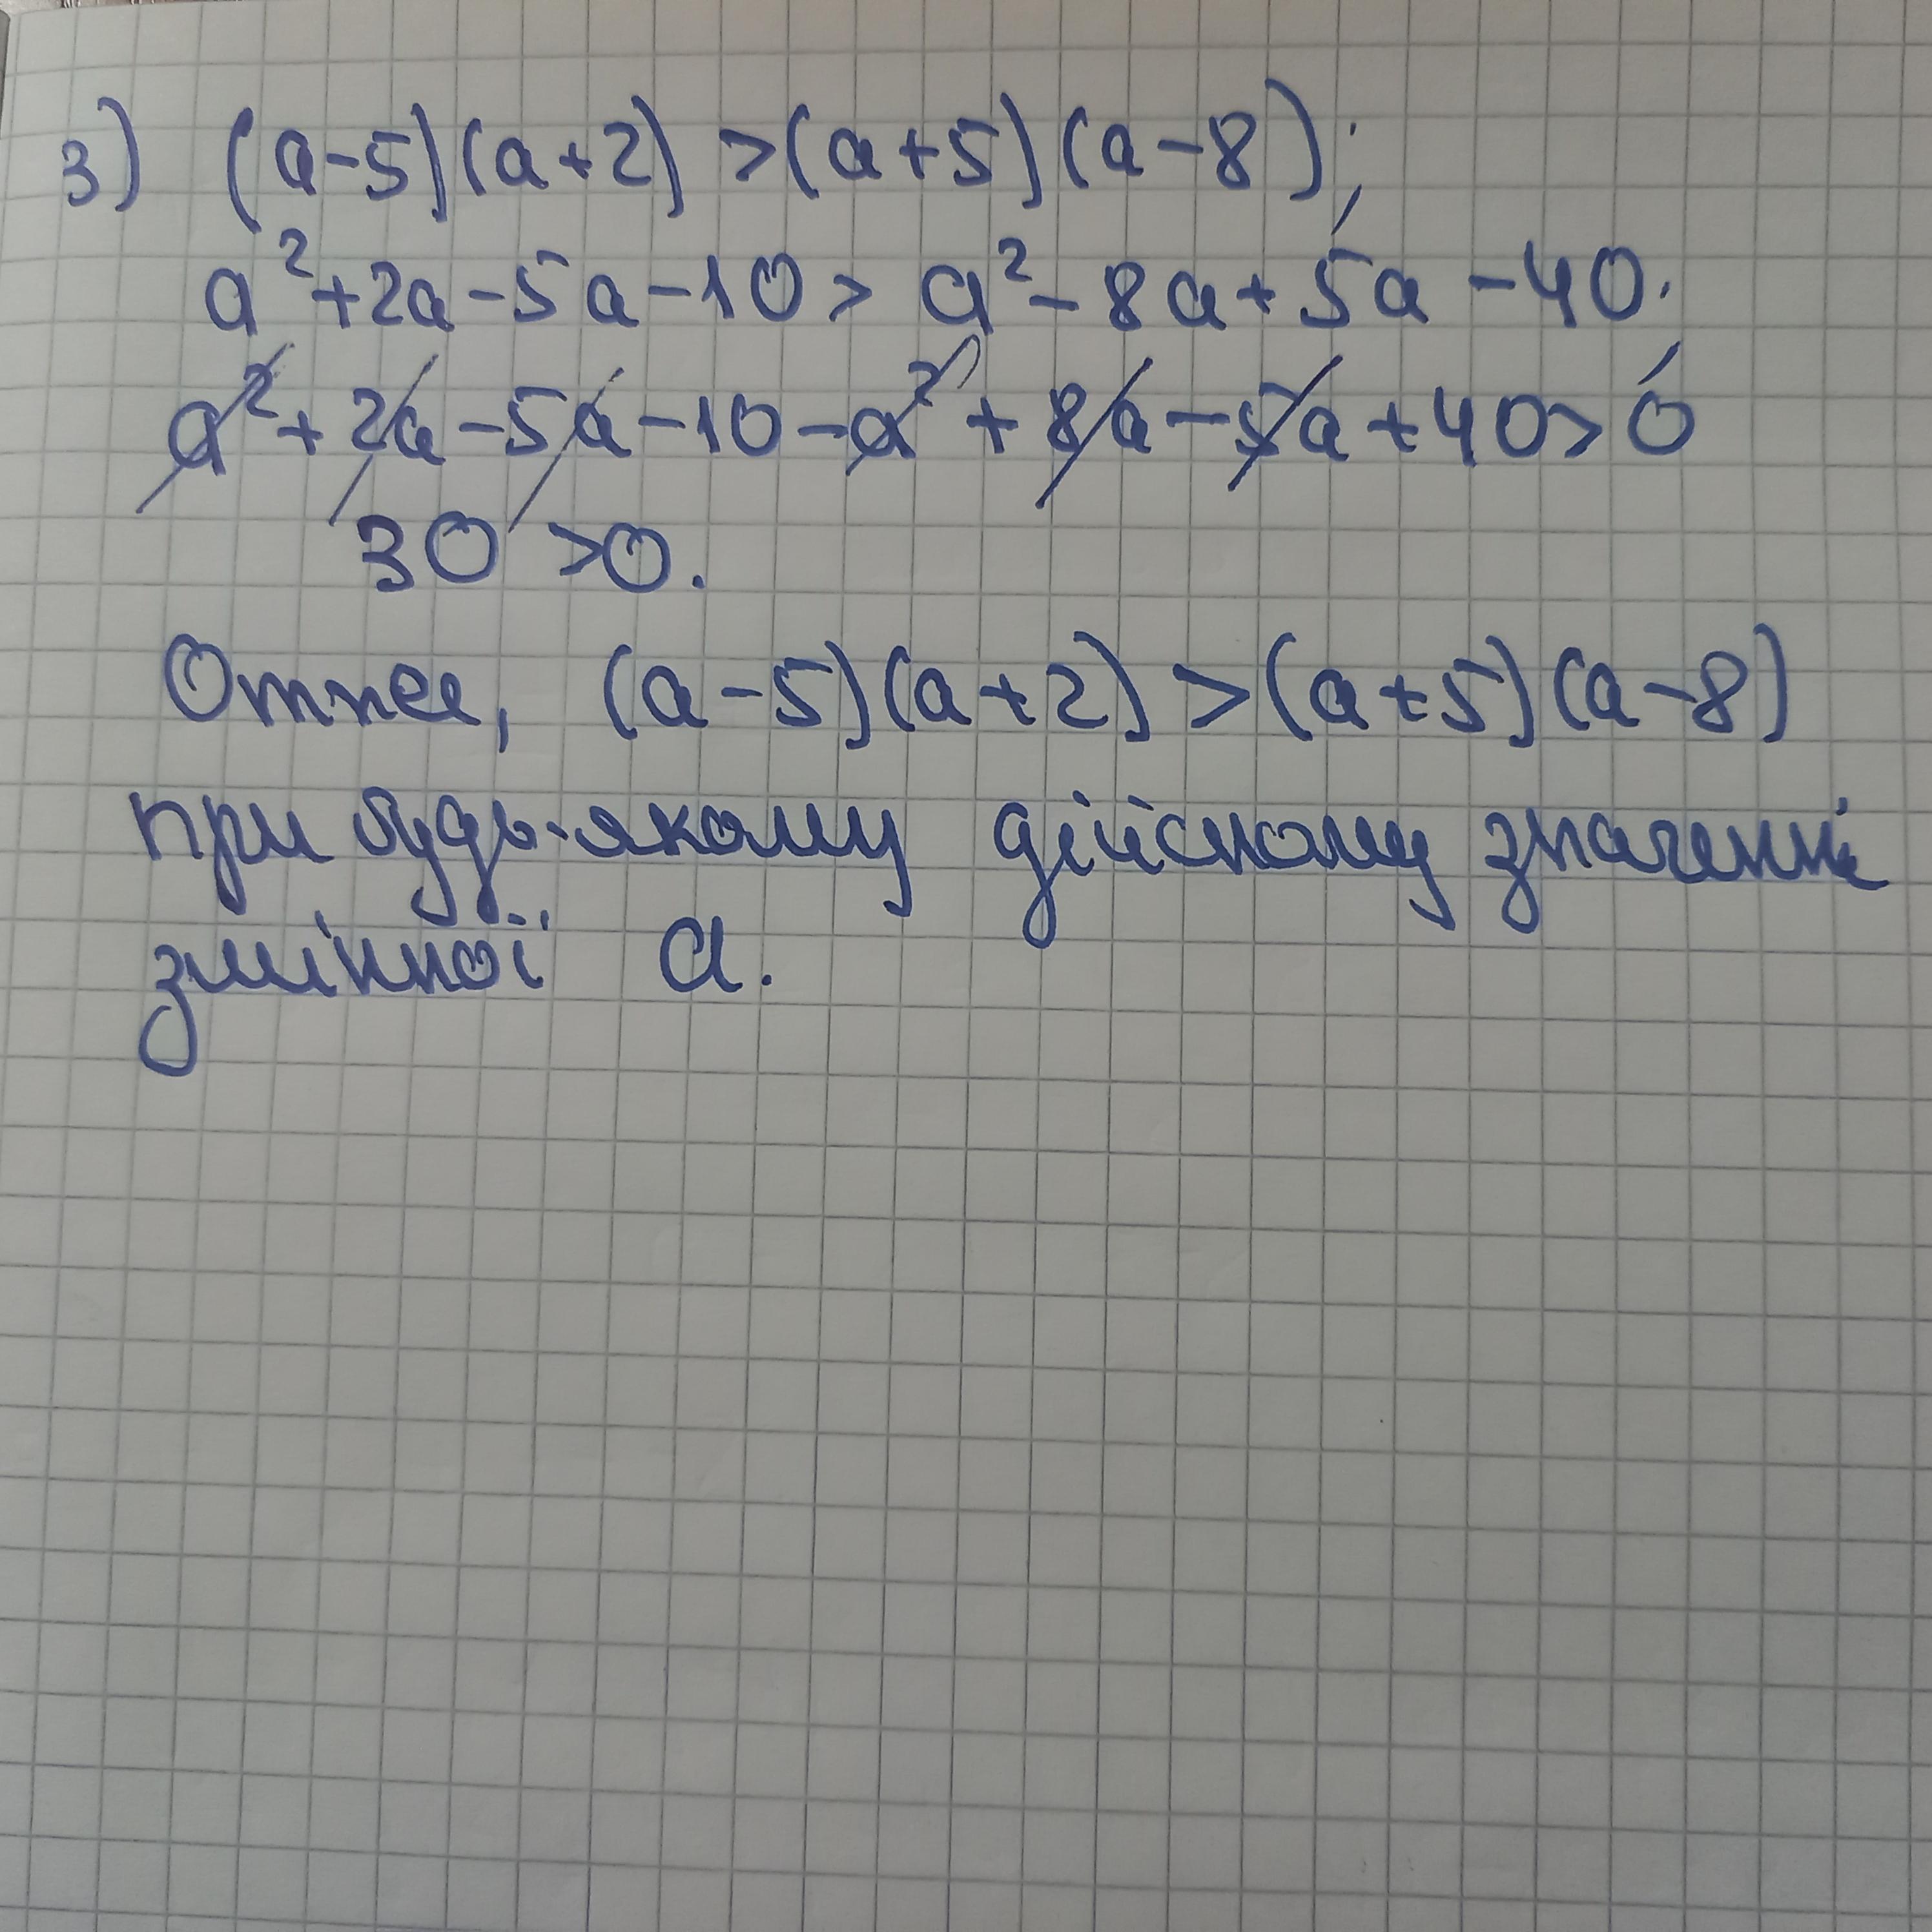 3) (a-5)(a+2) > (a+5)(a-8);
a²+2a-5a-10 > a²-8a+5a-40.
a²+2a-5a-10-a²+8a-5a+40>0
30>0.
Отже, (a-5)(a+2) > (a+5)(a-8)
при будь-якому дійсному значенні
змінної a.